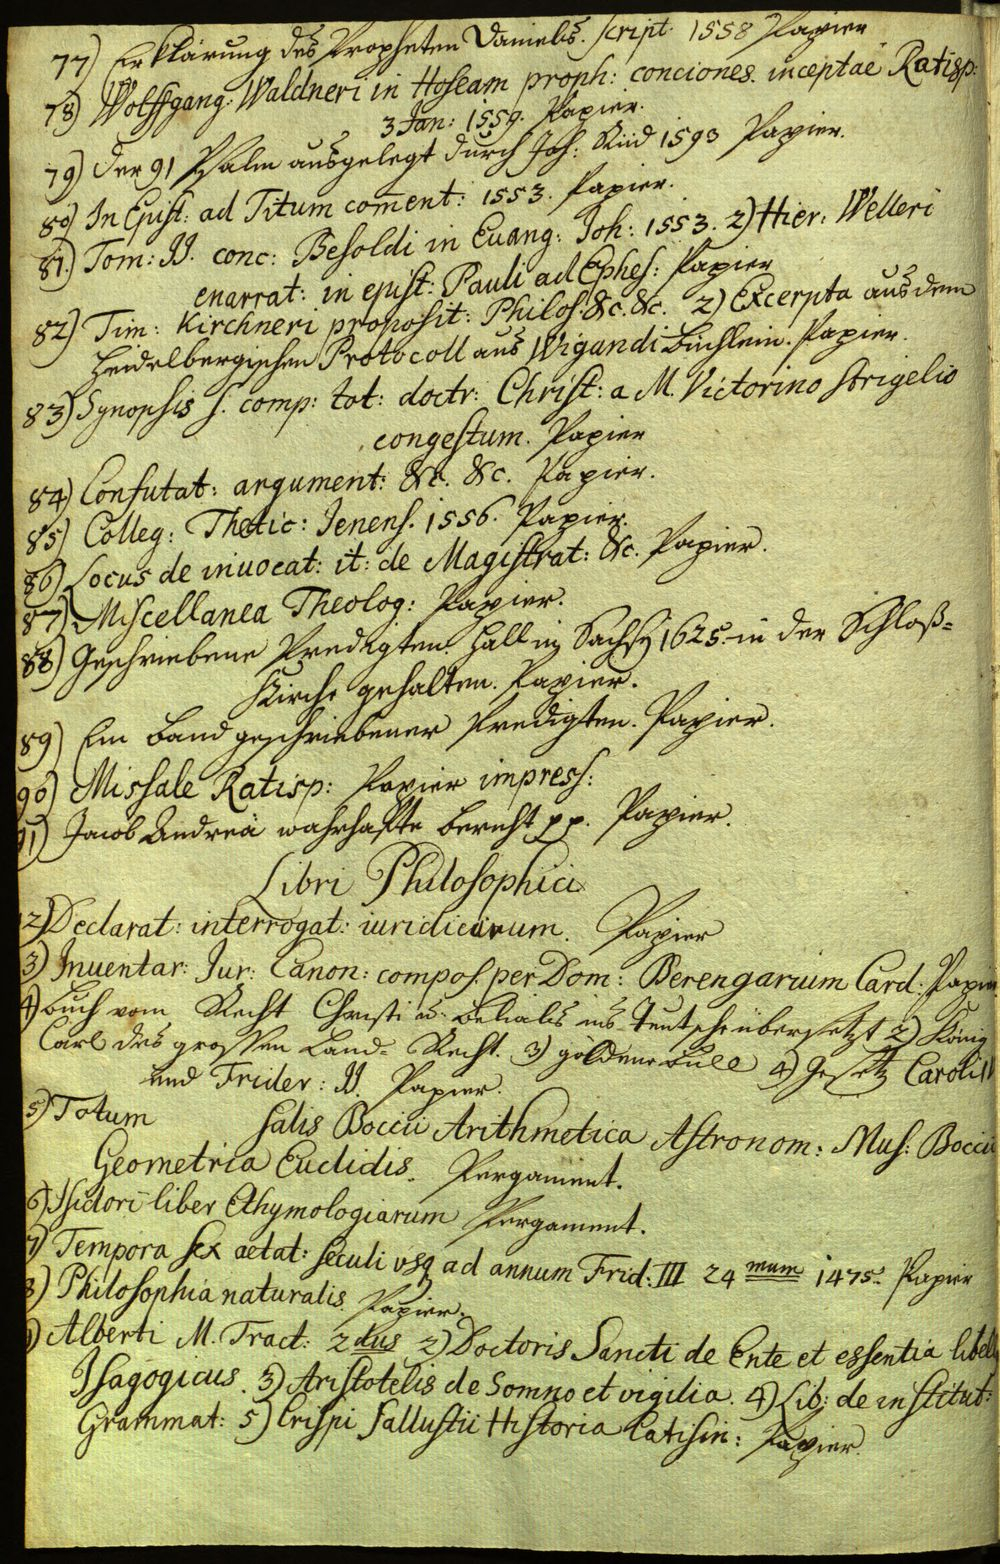 77) Erklärung des Propheten Danielis. script. 1558 Papier
78) Wolffgang: Waldneri in Hoseam proph: conciones inceptae Ratisp:
3 Jan: 1559. Papier.
79) Der 91 Psalm ausgelegt durch Joh: Rüd 1593 Papier.
80) In Epist: ad Titum coment: 1553. Papier.
81.) Tom: II. conc: Besoldi in Euang: Joh: 1553. 2) Hier: Welleri
enarrat: in epist: Pauli ad Ephes: Papier
82) Tim: Kirchneri proposit: Philos: &c. &c. 2) Excerpta aus dem
Heidelbergischen Protocoll aus Wigandi Büchlein. Papier.
83) Synopsis s. comp: tot: doctr: Christ: a M. Victorino Strigelio
congestum. Papier
84) Confutat: argument: &c. &c. Papier.
85) Colleg: Thetic: Jenens. 1556. Papier.
86) Locus de inuocat: it: de Magistrat: &c. Papier.
87) Miscellanea Theolog: Papier.
88) Geschriebene Predigten Hall in Sachs 1625. in der Schloß-
Kirche gehalten. Papier.
89) Ein Band geschriebener Predigten. Papier.
90) Missale Ratisp: Papier impress:
91) Jacob Andreä wahrhafte Bericht pp. Papier.
Libri Philosophici
2) Declarat: interrogat: iuridicarum. Papier
3) Inuentar: Jur: Canon: compos. per Dom: Berengarium Card: Papier
4) Buch vom Recht Christi u. Belialis ins Teutsche übersetzt 2) König
Carl des grossen Land-Recht. 3) goldene Bull 4) Gesetz Caroli IV
und Frider: II. Papier.
5) Totum Salis Boccii Arithmetica Astronom: Mus: Boccii
Geometria Euclidis. Pergament.
6) Isidori liber Ethymologiarum Pergament.
7) Tempora sex aetat: seculi usq ad annum Frid: III 24 mum 1475. Papier
8) Philosophia naturalis. Papier.
9) Alberti M. Tract: 2 dus 2) Doctoris Sancti de Ente et essentia libell
Isagogicus. 3) Aristotelis de Somno et vigilia. 4) Lib: de institut:
Grammat: 5) Crispi Sallustii Historia Catilin: Papier.